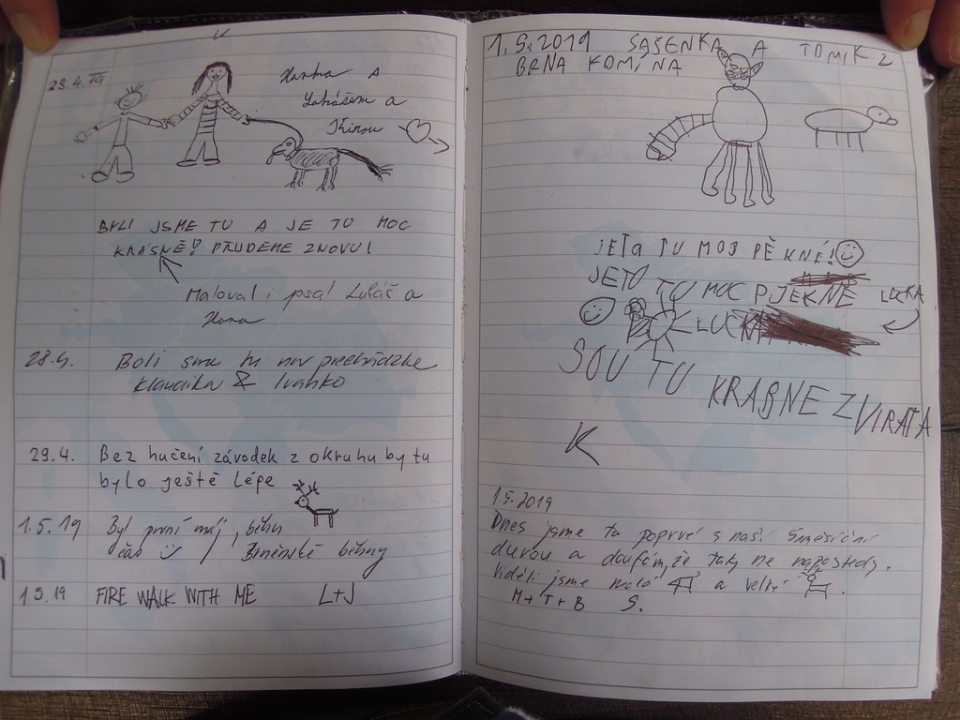 28.4.19
Hanka a
Lukášem a
BYLI JSME TU A JE TO MOC
KRÁSNÉ! PŘIJDEME ZNOVU!
Maloval i psal Lukáš a
Hana
28.4. Boli sme tu na prechádzke
Klaudika & Ivanko
29.4. Bez hučení závodek z okruhu by tu
bylo ještě lépe
1.5.19 Byl první máj, běhu
čas Brněnské běhny
1.5.19 FIRE WALK WITH ME L+J
1.5.2019 SAŠENKA A TOMIK Z
BRNA KOMÍNA
JETO TU MOJ PĚKNÉ!
JETO TU MOC PJEKNÉ LUCKA
LUCKA
SOU TU KRABNE ZVIRATA
K
1.5.2019
Dnes jsme tu poprvé s naší 5měsíční
dcerou a doufám, že tady ne naposledy.
Viděli jsme malé a velké .
M+T+B S.